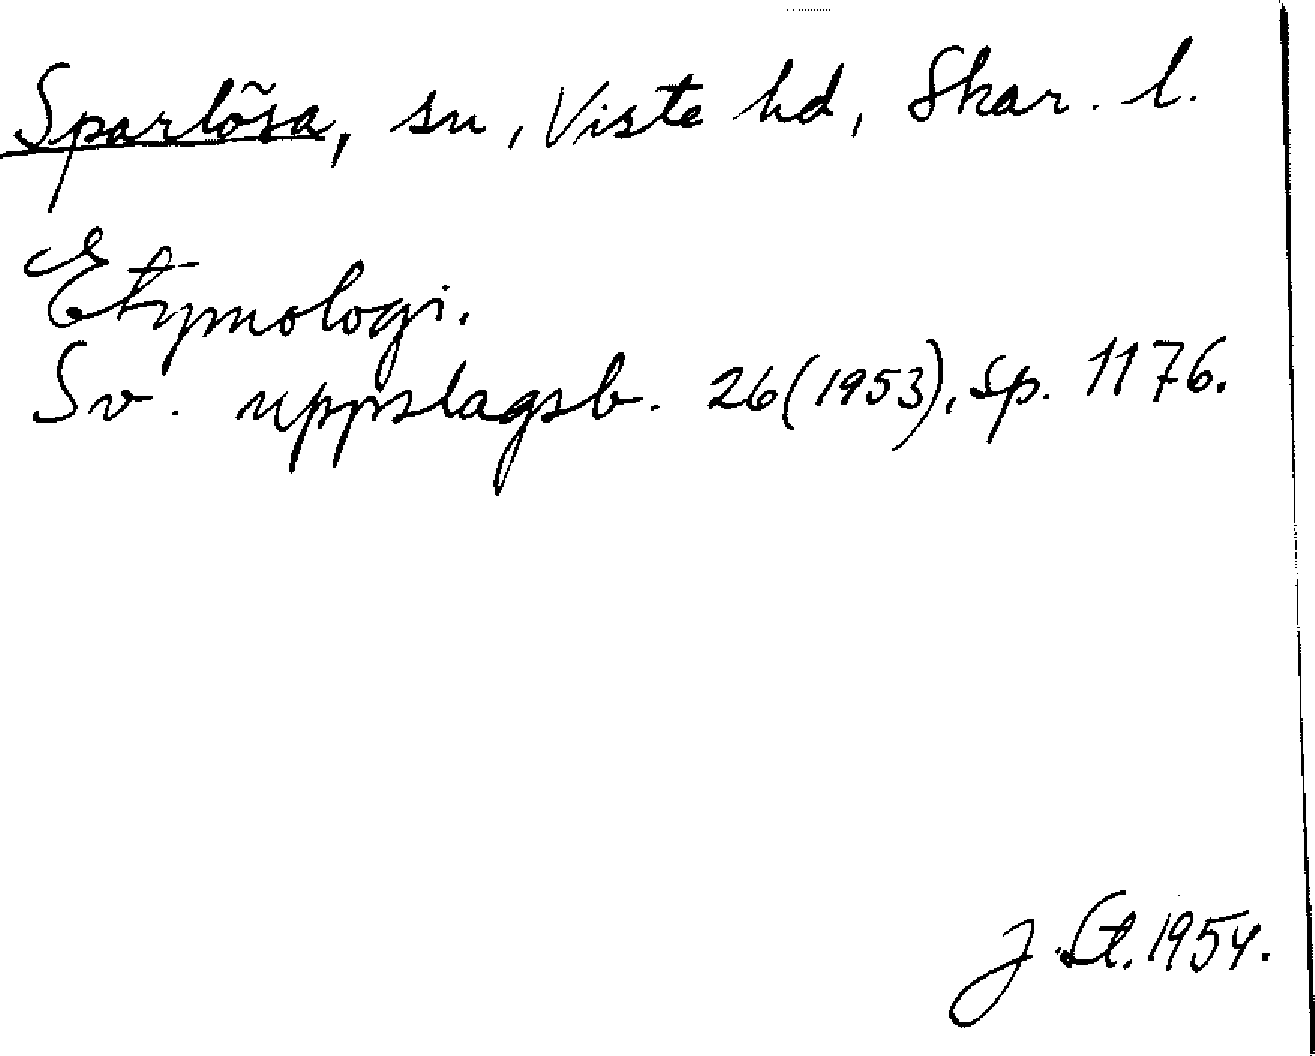 Sparlösa, sn, Viste hd, Skar. l.
Etymologi.
Sv. uppslagsb. 26(1953), sp. 1176.
J. St. 1954.